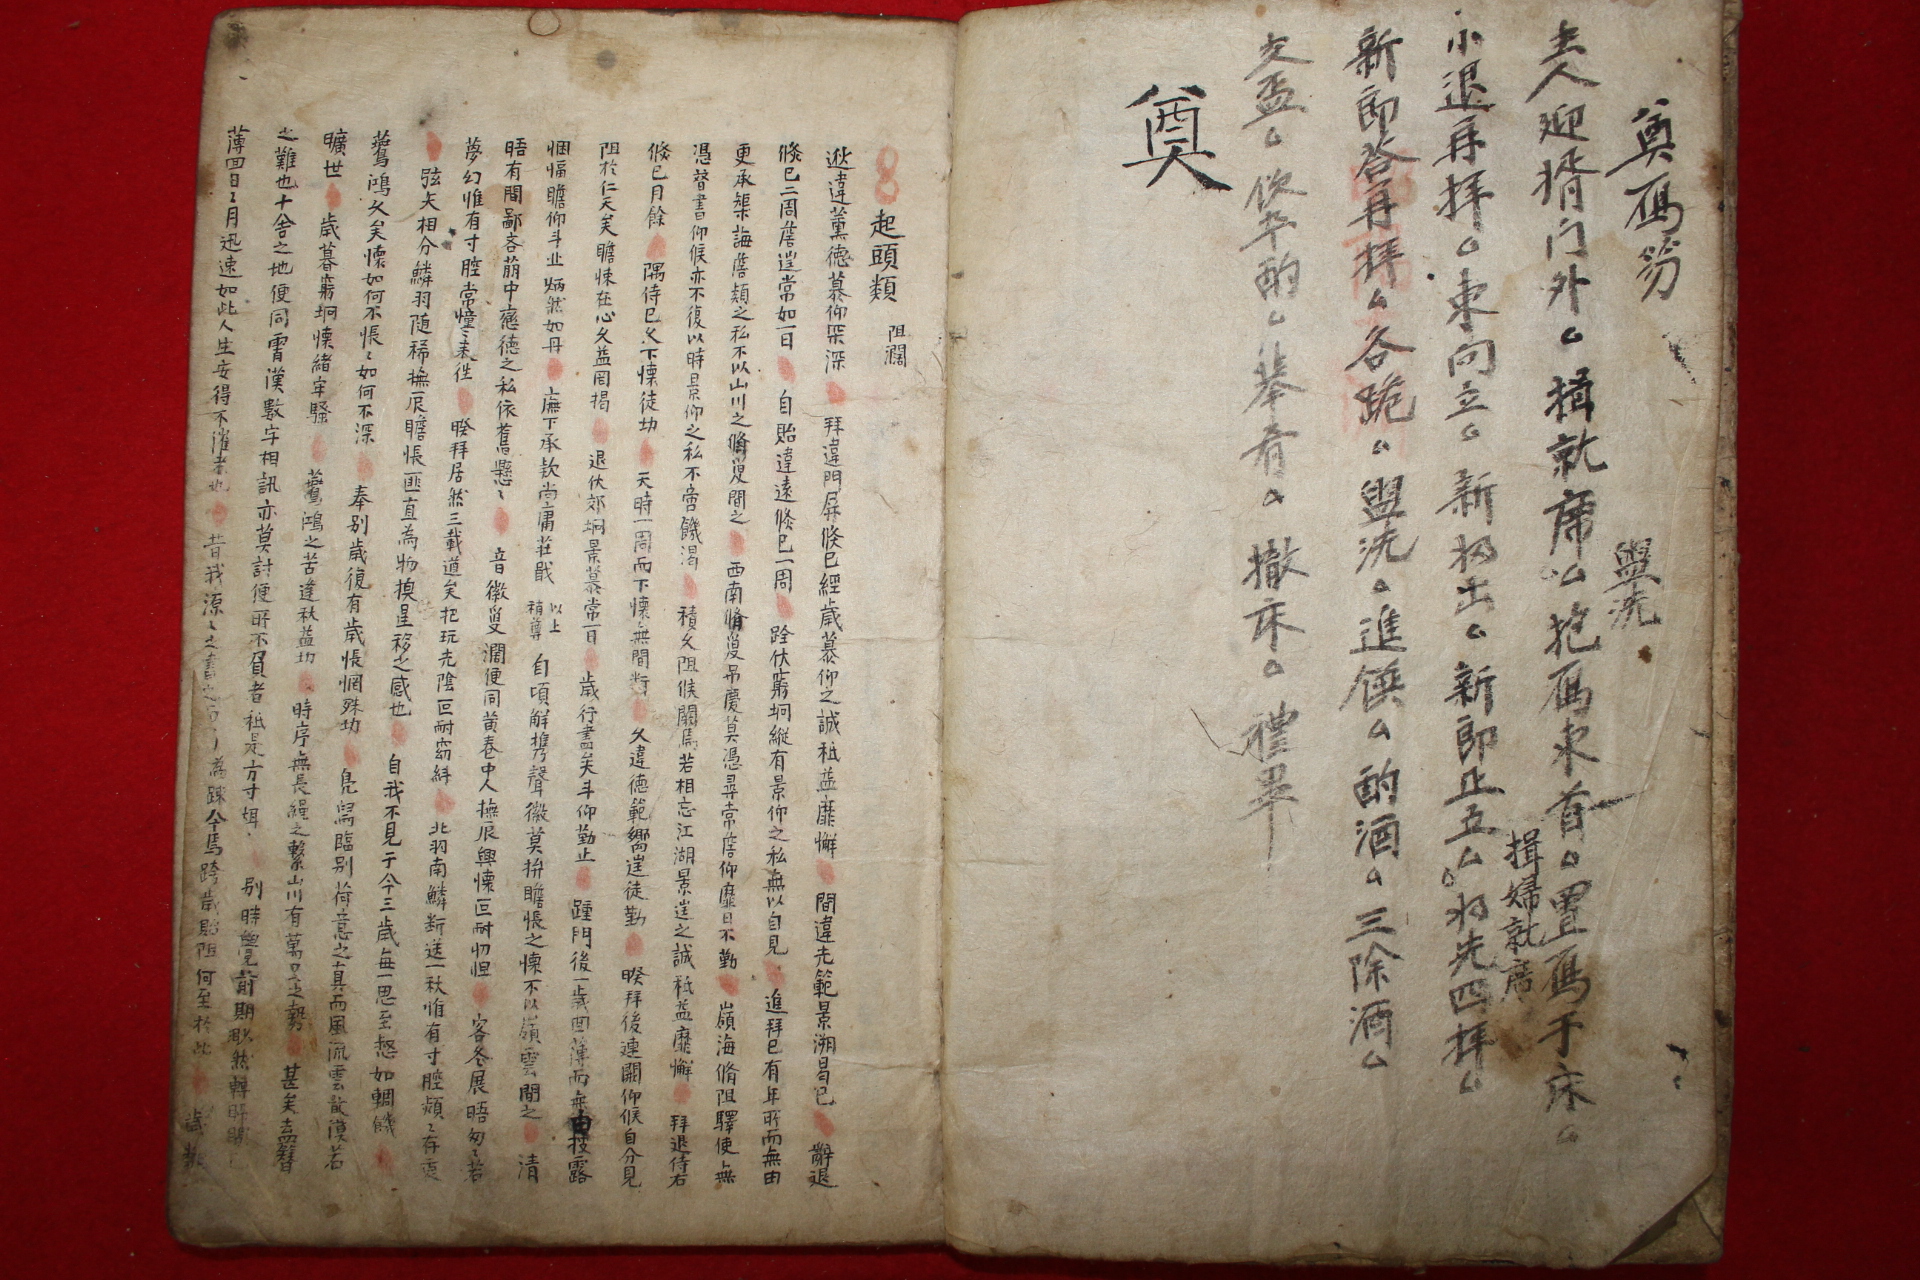 奠鴈笏
盥洗
主人迎揖門外。揖就席。以抱鴈東首。置鴈于床。
揖婦就席
小退再拜。東向立。新婦出。新郎止五。婦先四拜。
新郎答再拜。各跪。盥洗。進饌。酌酒。三除酒。
交盃。俠卒酌。舉肴。撤床。禮畢
奠
起頭類 阻濶
逖違薰德慕仰罙深 拜違門屏倐已經歲慕仰之誠秪益靡懈 間違尤範景溯曷已 辭退
倐已二周慕逞常如一日 自貽違遠倐已一周 跧伏窮垌縱有景仰之私無以自見 進拜已有年所而無由
更承渠誨詹頫之私不以山川之脩夐間之 西南脩夐吊慶莫憑尋常詹仰靡日不勤 嶺海脩阻驛使無
憑替書仰候亦不復以時景仰之私不啻饑渴 積久阻候闕焉若相忘江湖景逞之誠秪益靡懈 拜退待右
倐已月餘 隅侍已久下懷徒切 天時一周而下懷無間 久違德範嚮逞徒勤 暌拜後連闕仰候自分見
阻於仁天矣瞻悚在心久益罔揭 退伏郊垌景慕常一日 歲行盡矣斗仰勤止 踵門後一歲回薄而無由披露
悃愊瞻仰斗北炳然如丹 廡下承欵尚庸莊戢 以上稍尊 自頃解携聲徽莫拚瞻悵之懷不以嶺雲間之 清
晤有間鄙吝萠中慈德之私依舊懸〻 音徽夐濶便同黄卷中人撫辰興懷叵耐忉怛 客冬展晤匆〻若
夢幻惟有寸腔常憧〻来徃 暌拜居然三載道矣把玩光陰叵耐窈糾 北羽南鱗断送一秋惟有寸腔頫〻存衷
弦矢相分鱗羽随稀撫辰瞻悵匪直為物換星移之感也 自我不見于今三歲每一思至惄如輖饑
鷰鴻久矣懷如何不悵〻如何不深 奉别歲復有歲悵惘殊切 鳧舄臨别荷意之真而風流雲散漠若
曠世 歲暮窮垌懷緒牢騷 鷰鴻之苦逢秋益切 時序無長繩之繫山川有萬里之勢 甚矣盍簪
之難也十舍之地便同霄漢數字相訊亦莫討便所不負者秪是方寸
薄四日〻月迅速如此人生安得不催老也 昔我源〻之書 為踈今焉跨歲貽阻何至於此